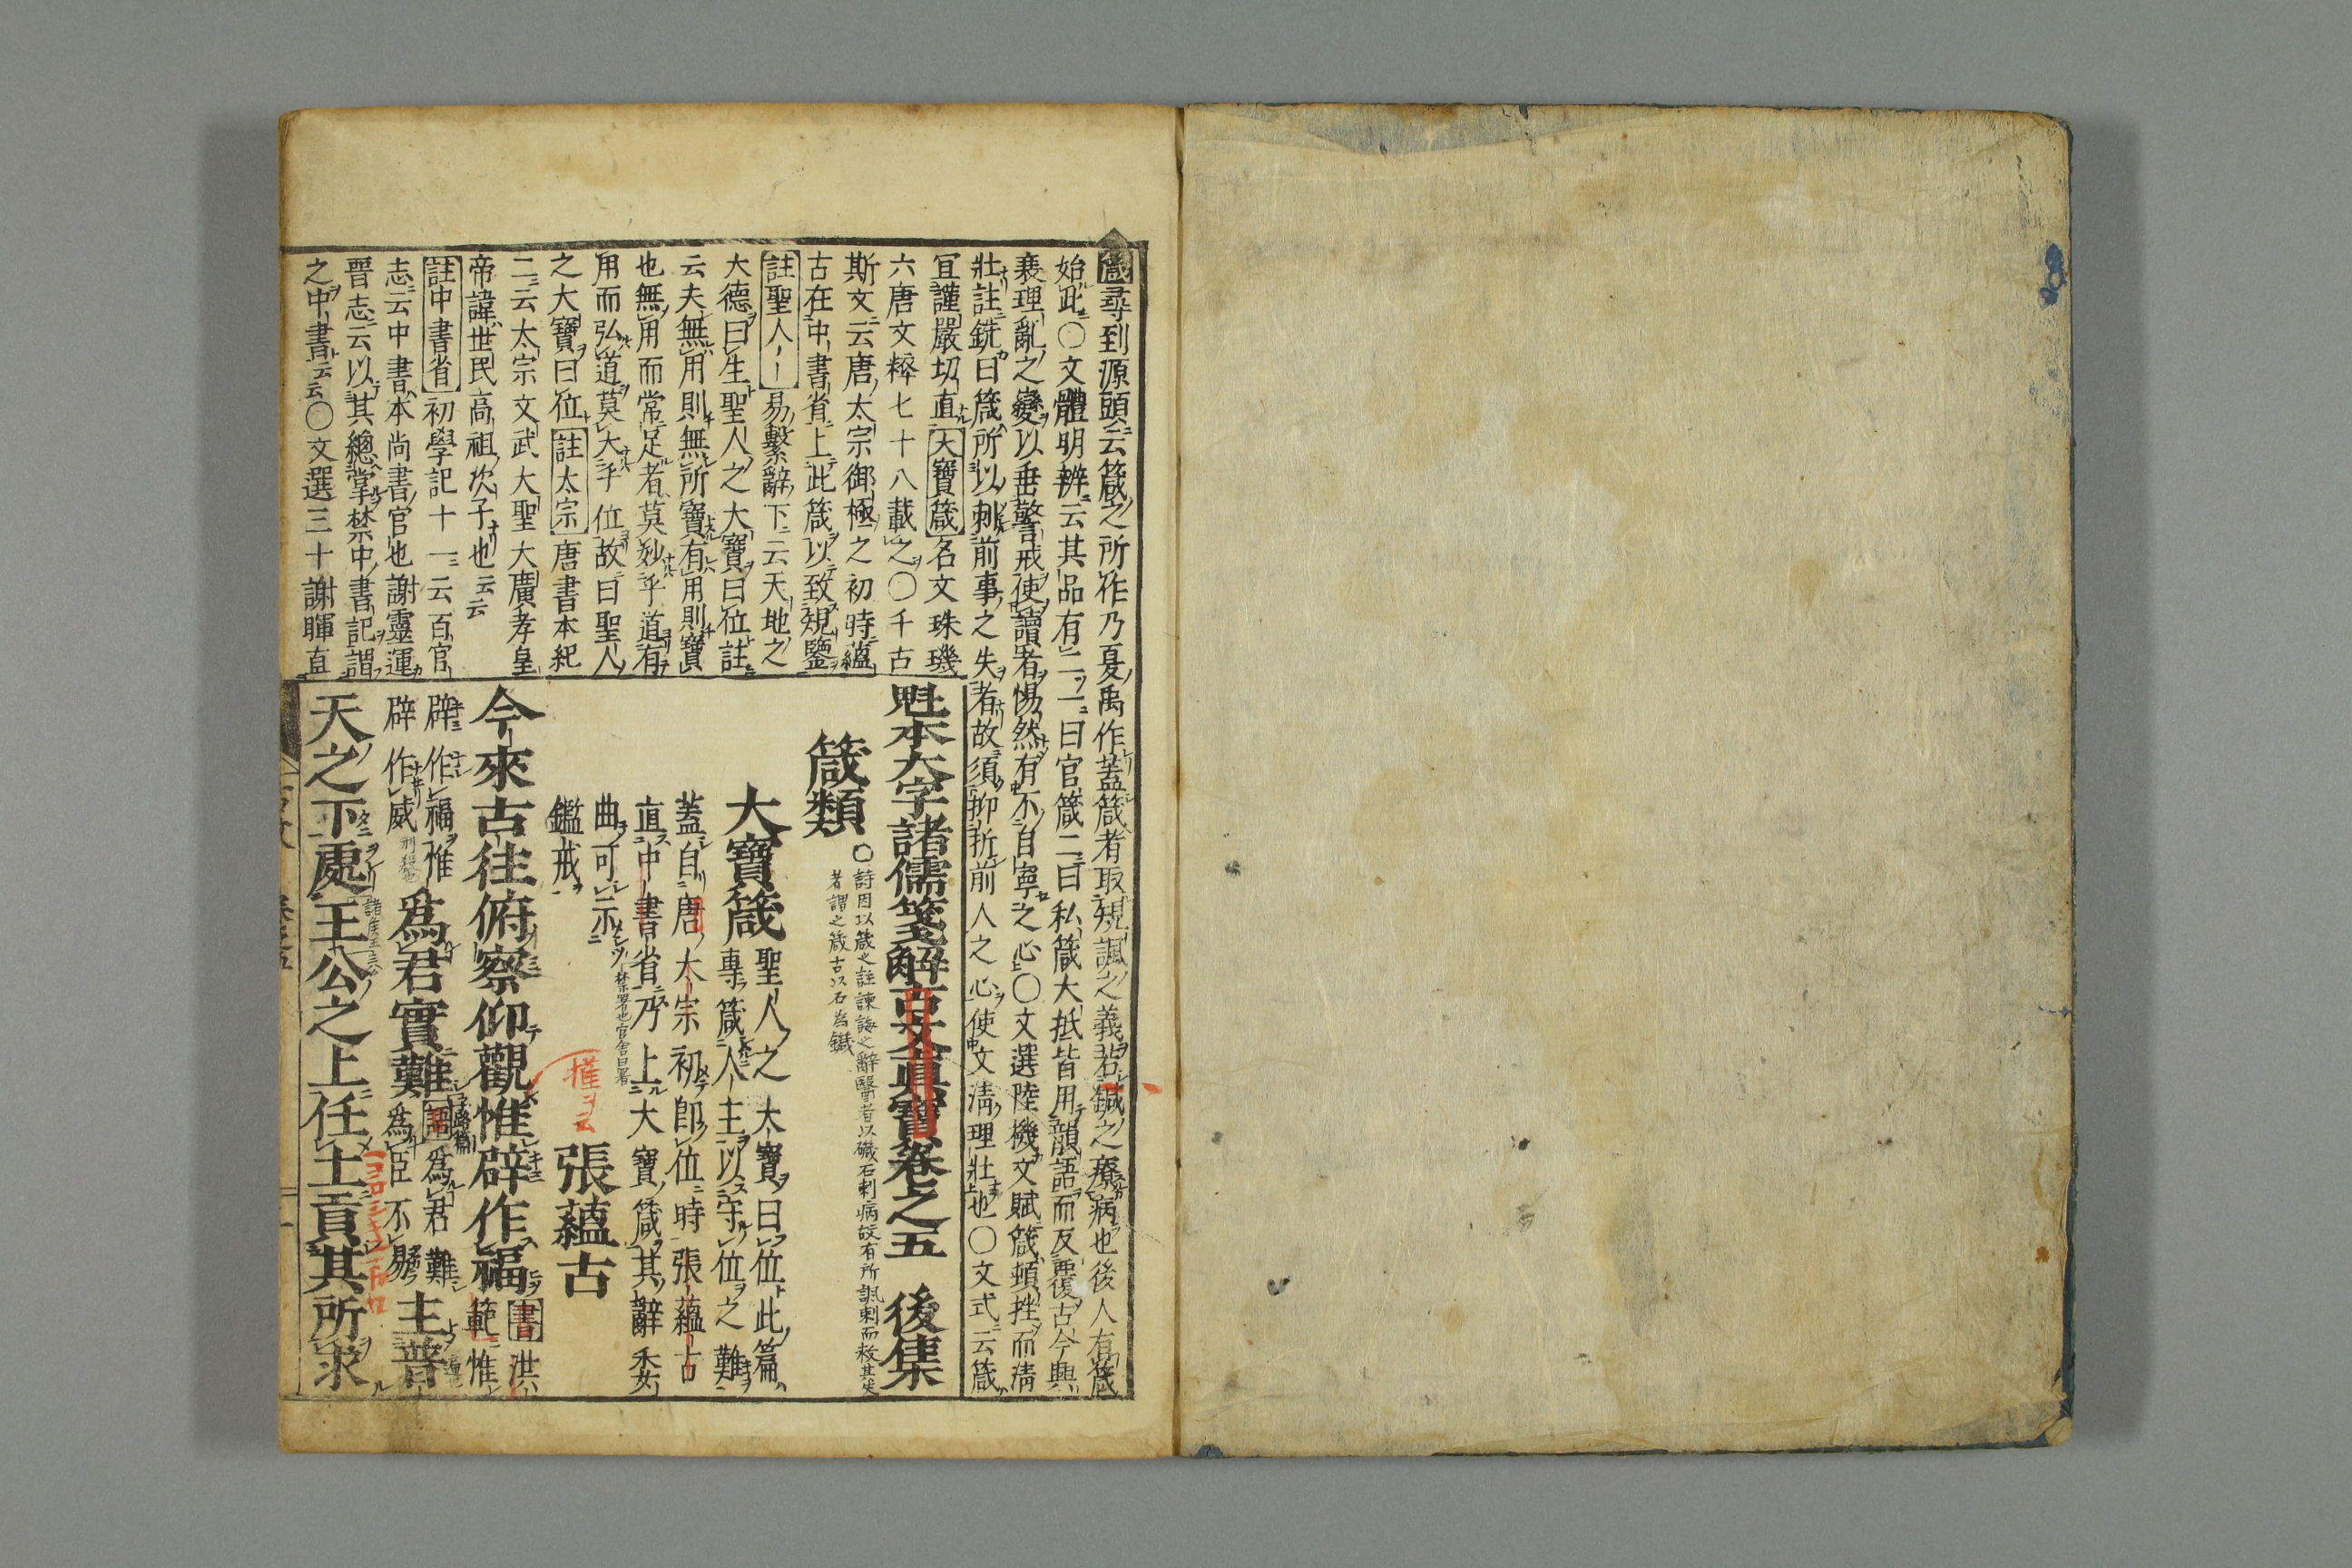 箴尋到源頭云箴之所作乃夏禹作蓋箴者取規諷之義若鍼之療病也後人有箴
始此〇文體明辨云其品有二一曰官箴二曰私箴大抵皆用韻語而反覆古今興
衰理亂之變以垂警戒使讀者惕然有不自寧之心〇文選陸機文賦箴頓挫而淸
壯註銑曰箴所以刺前事之失者故須抑折前人之心使文淸理壯也〇文式云箴
宜謹嚴切直大寶箴名文珠璣
六唐文粹七十八載之〇千古
斯文云唐太宗御極之初時蘊
古在中書省上此箴以致規鑒
註聖人〡〡易繫辭下云天地之
大德曰生聖人之大寶曰位註
云夫無用則無所寶有用則寶
也無用而常足者莫妙乎道有
用而弘道莫大乎位故曰聖人
之大寶曰位註太宗唐書本紀
二云太宗文武大聖大廣孝皇
帝諱世民高祖次子也云云
註中書省初學記十一云百官
志云中書本尚書官也謝靈運
晉志云以其總掌禁中書記謂
之中書云云〇文選三十謝暉直
魁本大字諸儒箋解古文眞寶卷之五　後集
箴類
〇詩因以箴之註諫誨之辭醫者以礒石刺病故有所諷刺而救其失
者謂之箴古以石為鍼
大寶箴
聖人之大寶曰位此篇
專箴人主以守位之難
蓋自唐太宗初卽位時張蘊古
直中書省乃上大寶箴其辭委
曲可示禁署也官舍曰署
鑑戒
張蘊古
今來古往俯察仰觀惟辟作福書洪
範惟
辟作福惟
辟作威刑殺也
爲君實難語子路篇爲君難
爲臣不易
主普遍也
天之下處王公之上諸侯王三公任土貢其所求